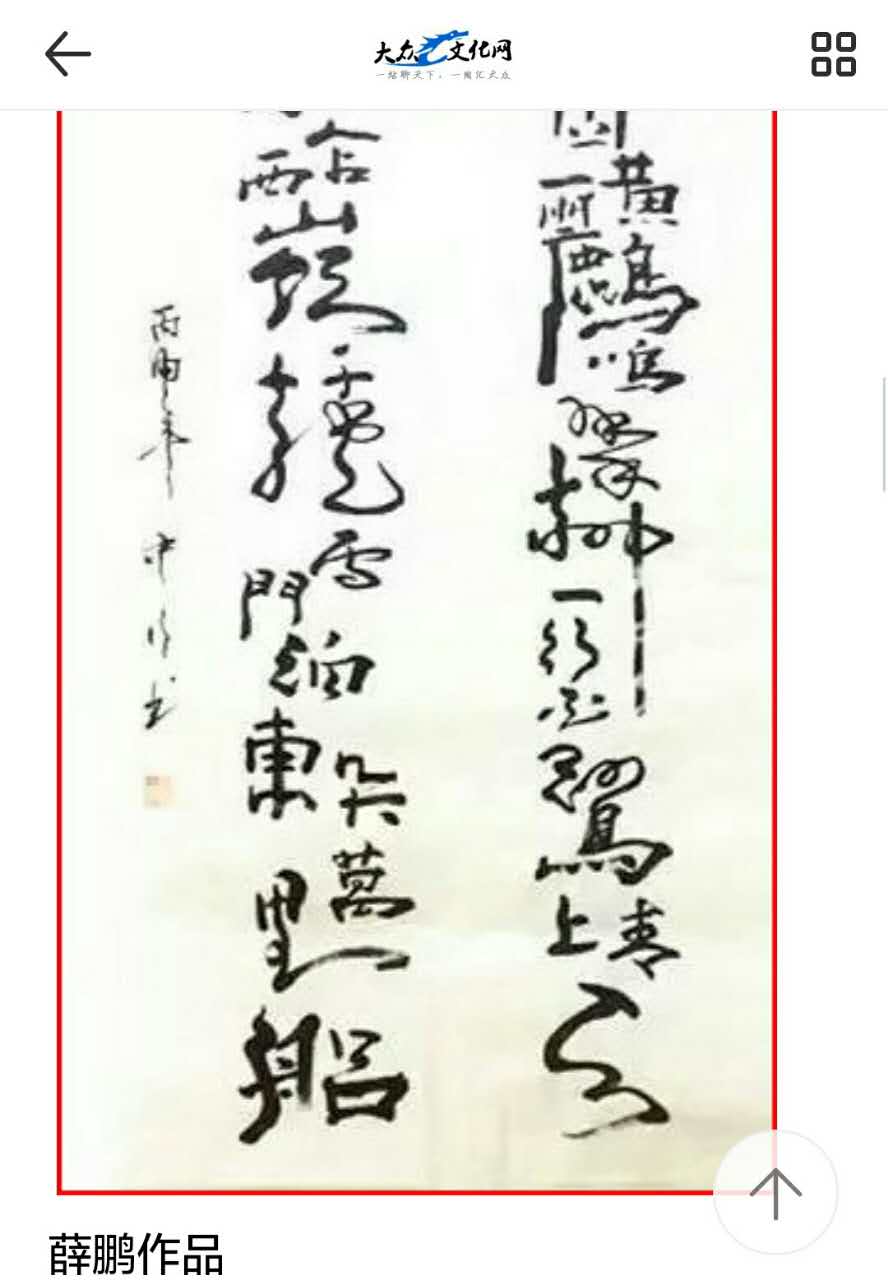 大众文化网
一站聊天下,一网汇大众
黃鸝鳴翠柳一行白鷺上青天
含西嶺千秋雪門泊東吳萬里船
丙申年中书
薛鹏作品